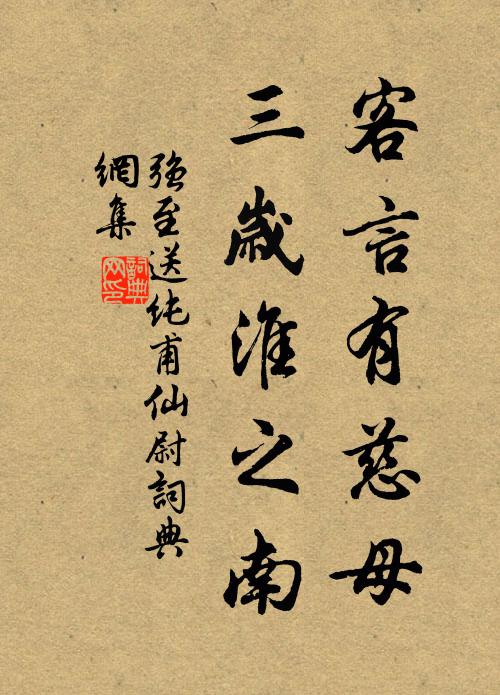 客言有慈母
三歲淮之南
強至送純甫仙尉詞典
網集
詞典
網印